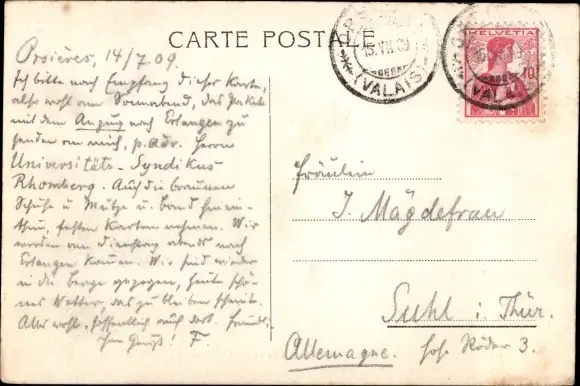 CARTE POSTALE
Orsières, 14/7.09.
Ich bitte nach Empfang dieser Karte,
also wohl am Sonnabend, das Paket
mit dem Anzug nach Erlangen zu
senden an mich, p. Adr. Herrn
Universitäts-Syndikus
Rhomberg. Auch die braunen
Schuhe u. Mütze u. Band hinein-
thun, festen Karton nehmen. Wir
werden am Dienstag abends nach
Erlangen kommen. Wir sind wieder
in die Berge gezogen, heute schö-
nes Wetter, das zu bleiben scheint.
Alles wohl, hoffentlich auch dort. Freundli-
chen Gruß! F.
HELVETIA
10
15.VII.09
(VALAIS)
Fräulein
J. Mägdefrau
Suhl i. Thür.
Allemagne. Röder 3.